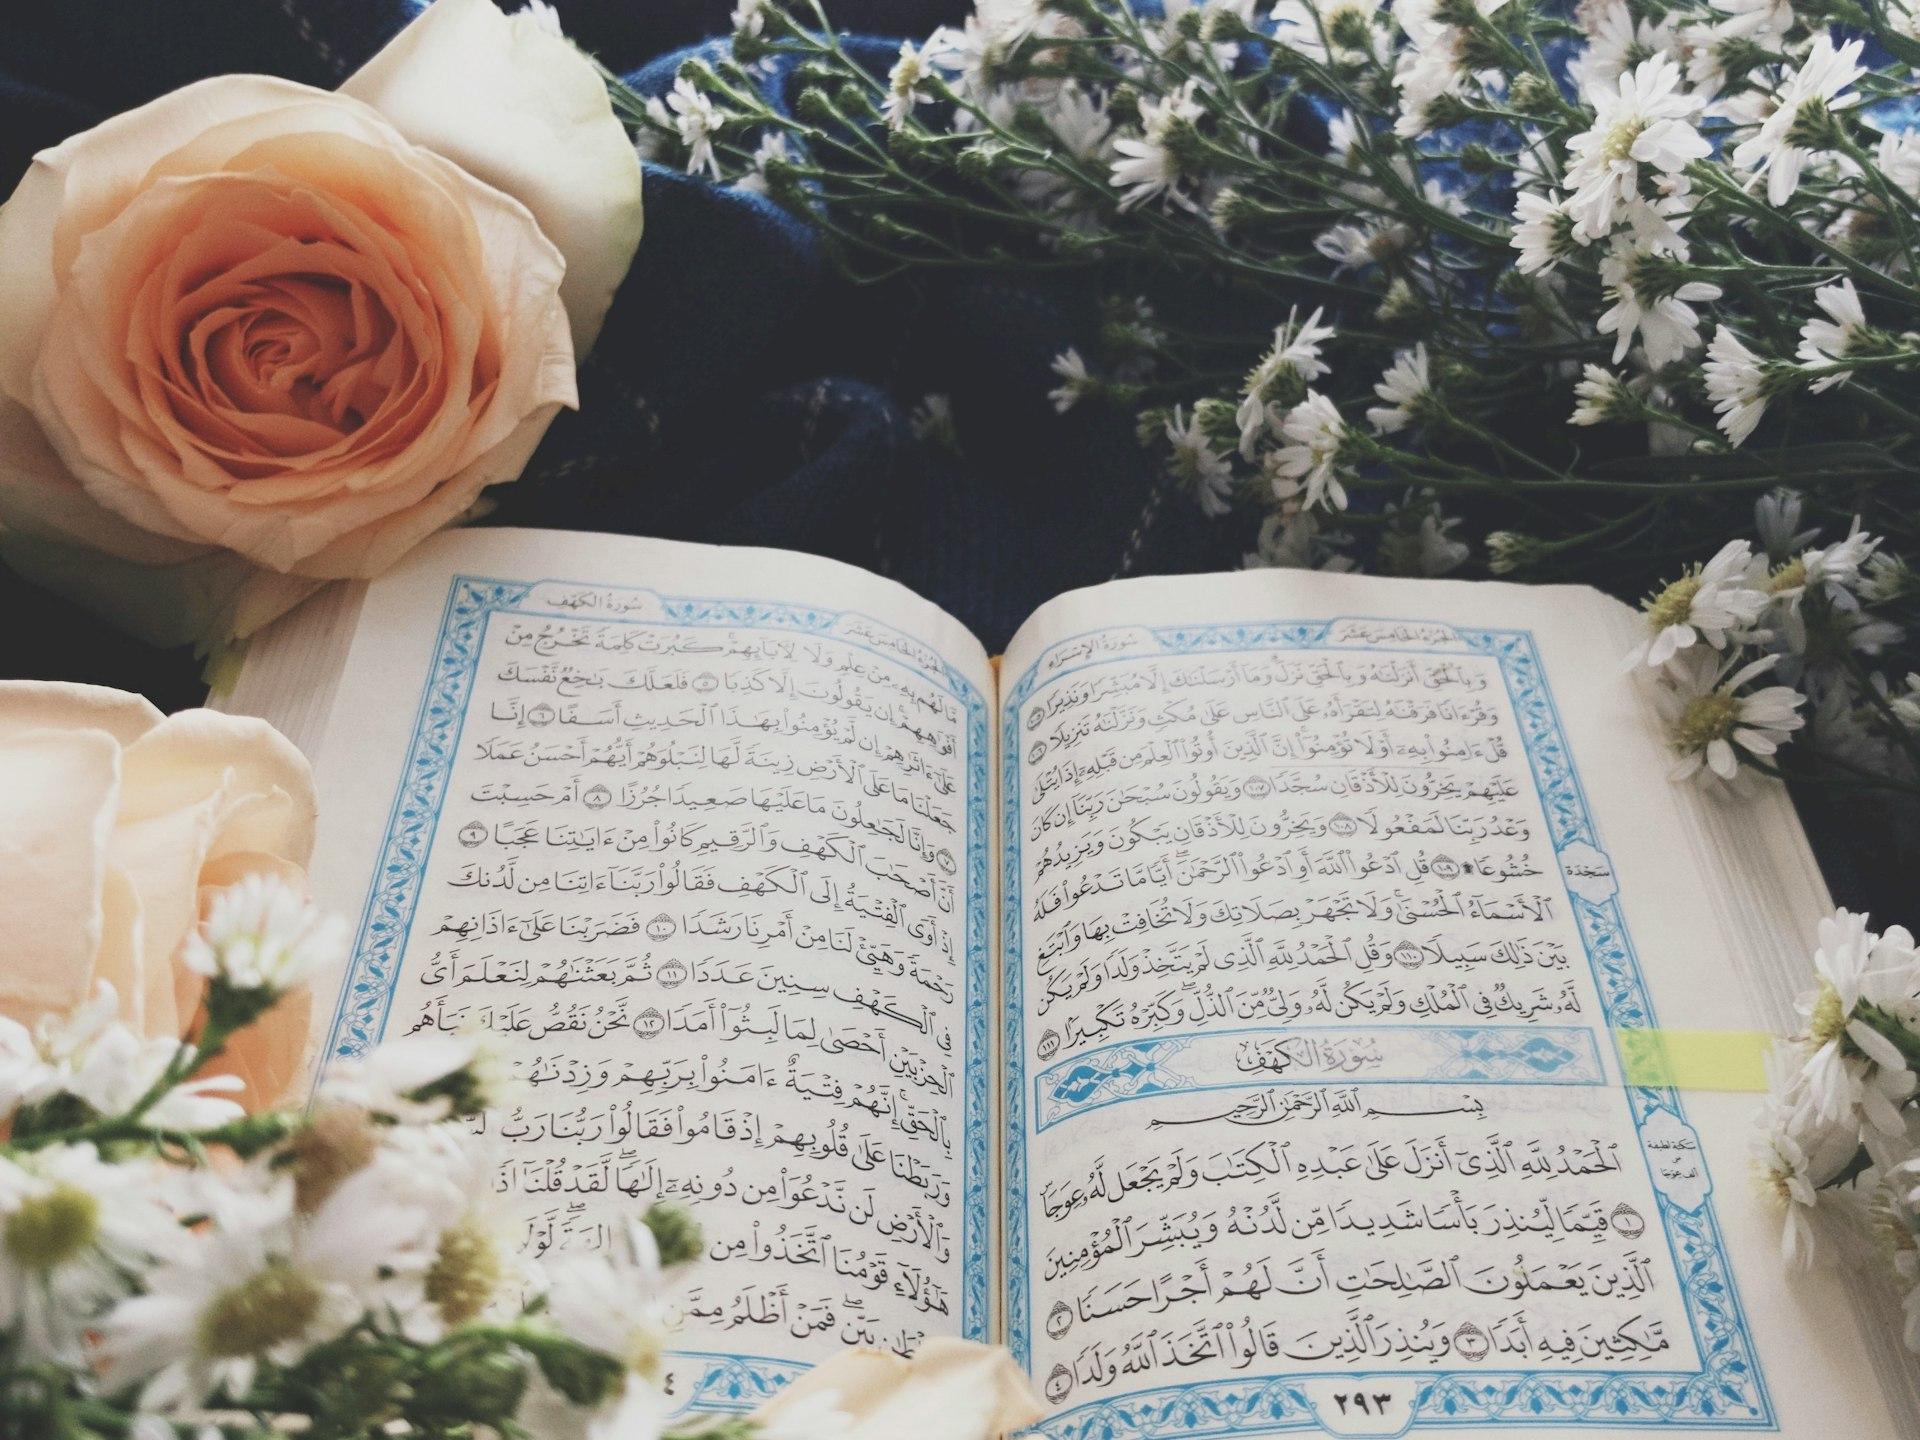 الجُزءُ الخَامِسَ عَشَر سُورَةُ الإِسْرَاءِ
وَبِٱلْحَقِّ أَنزَلْنَٰهُ وَبِٱلْحَقِّ نَزَلَ وَمَآ أَرْسَلْنَٰكَ إِلَّا مُبَشِّرًا وَنَذِيرًا ١٠٥
وَقُرْءَانًا فَرَقْنَٰهُ لِتَقْرَأَهُۥ عَلَى ٱلنَّاسِ عَلَىٰ مُكْثٍ وَنَزَّلْنَٰهُ تَنزِيلًا ١٠٦
قُلْ ءَامِنُوا۟ بِهِۦٓ أَوْ لَا تُؤْمِنُوٓا۟ إِنَّ ٱلَّذِينَ أُوتُوا۟ ٱلْعِلْمَ مِن قَبْلِهِۦٓ إِذَا يُتْلَىٰ
عَلَيْهِمْ يَخِرُّونَ لِلْأَذْقَانِ سُجَّدًا ١٠٧ وَيَقُولُونَ سُبْحَٰنَ رَبِّنَآ إِن كَانَ
وَعْدُ رَبِّنَا لَمَفْعُولًا ١٠٨ وَيَخِرُّونَ لِلْأَذْقَانِ يَبْكُونَ وَيَزِيدُهُمْ
خُشُوعًا ۩ ١٠٩ قُلِ ٱدْعُوا۟ ٱللَّهَ أَوِ ٱدْعُوا۟ ٱلرَّحْمَٰنَ ۖ أَيًّا مَّا تَدْعُوا۟ فَلَهُ
سَجْدَة
ٱلْأَسْمَآءُ ٱلْحُسْنَىٰ ۚ وَلَا تَجْهَرْ بِصَلَاتِكَ وَلَا تُخَافِتْ بِهَا وَٱبْتَغِ
بَيْنَ ذَٰلِكَ سَبِيلًا ١١٠ وَقُلِ ٱلْحَمْدُ لِلَّهِ ٱلَّذِى لَمْ يَتَّخِذْ وَلَدًا وَلَمْ يَكُن
لَّهُۥ شَرِيكٌ فِى ٱلْمُلْكِ وَلَمْ يَكُن لَّهُۥ وَلِىٌّ مِّنَ ٱلذُّلِّ ۖ وَكَبِّرْهُ تَكْبِيرًۢا ١١١
سُورَةُ الكَهْفِ
بِسْمِ ٱللَّهِ ٱلرَّحْمَٰنِ ٱلرَّحِيمِ
ٱلْحَمْدُ لِلَّهِ ٱلَّذِىٓ أَنزَلَ عَلَىٰ عَبْدِهِ ٱلْكِتَٰبَ وَلَمْ يَجْعَل لَّهُۥ عِوَجَاۜ
سكتة لطيفة
على
ألف عوجا
١ قَيِّمًا لِّيُنذِرَ بَأْسًا شَدِيدًا مِّن لَّدُنْهُ وَيُبَشِّرَ ٱلْمُؤْمِنِينَ
ٱلَّذِينَ يَعْمَلُونَ ٱلصَّٰلِحَٰتِ أَنَّ لَهُمْ أَجْرًا حَسَنًا ٢
مَّٰكِثِينَ فِيهِ أَبَدًا ٣ وَيُنذِرَ ٱلَّذِينَ قَالُوا۟ ٱتَّخَذَ ٱللَّهُ وَلَدًا ٤
٢٩٣
الجُزءُ الخَامِسَ عَشَر سُورَةُ الكَهْفِ
مَّا لَهُم بِهِۦ مِنْ عِلْمٍ وَلَا لِءَابَآئِهِمْ ۚ كَبُرَتْ كَلِمَةً تَخْرُجُ مِنْ
أَفْوَٰهِهِمْ ۚ إِن يَقُولُونَ إِلَّا كَذِبًا ٥ فَلَعَلَّكَ بَٰخِعٌ نَّفْسَكَ
عَلَىٰٓ ءَاثَٰرِهِمْ إِن لَّمْ يُؤْمِنُوا۟ بِهَٰذَا ٱلْحَدِيثِ أَسَفًا ٦ إِنَّا
جَعَلْنَا مَا عَلَى ٱلْأَرْضِ زِينَةً لَّهَا لِنَبْلُوَهُمْ أَيُّهُمْ أَحْسَنُ عَمَلًا
٧ وَإِنَّا لَجَٰعِلُونَ مَا عَلَيْهَا صَعِيدًا جُرُزًا ٨ أَمْ حَسِبْتَ
أَنَّ أَصْحَٰبَ ٱلْكَهْفِ وَٱلرَّقِيمِ كَانُوا۟ مِنْ ءَايَٰتِنَا عَجَبًا ٩
إِذْ أَوَى ٱلْفِتْيَةُ إِلَى ٱلْكَهْفِ فَقَالُوا۟ رَبَّنَآ ءَاتِنَا مِن لَّدُنكَ
رَحْمَةً وَهَيِّئْ لَنَا مِنْ أَمْرِنَا رَشَدًا ١٠ فَضَرَبْنَا عَلَىٰٓ ءَاذَانِهِمْ
فِى ٱلْكَهْفِ سِنِينَ عَدَدًا ١١ ثُمَّ بَعَثْنَٰهُمْ لِنَعْلَمَ أَىُّ
ٱلْحِزْبَيْنِ أَحْصَىٰ لِمَا لَبِثُوٓا۟ أَمَدًا ١٢ نَّحْنُ نَقُصُّ عَلَيْكَ نَبَأَهُم
بِٱلْحَقِّ ۚ إِنَّهُمْ فِتْيَةٌ ءَامَنُوا۟ بِرَبِّهِمْ وَزِدْنَٰهُمْ
وَرَبَطْنَا عَلَىٰ قُلُوبِهِمْ إِذْ قَامُوا۟ فَقَالُوا۟ رَبُّنَا رَبُّ
وَٱلْأَرْضِ لَن نَّدْعُوَا۟ مِن دُونِهِۦٓ إِلَٰهًا ۖ لَّقَدْ قُلْنَآ
هَٰٓؤُلَآءِ قَوْمُنَا ٱتَّخَذُوا۟ مِن
بَيِّنٍ ۖ فَمَنْ أَظْلَمُ مِمَّنِ